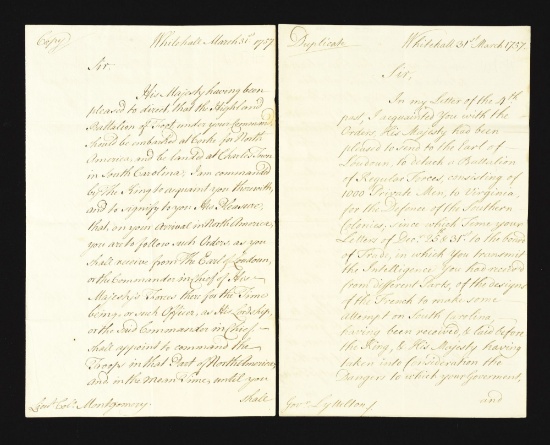 Copy
Whitehall March 31st 1757
Sir
His Majesty having been
pleased to direct, that the Highland
Battalion of Foot, under your Command,
should be embarked at Corke for North
America, and be landed at Charles Town
in South Carolina; I am commanded
by The King to acquaint you therewith,
and to signify to you His Pleasure,
that, on your Arrival in North America,
you are to follow such Orders, as you
shall receive from The Earl of Loudoun,
or the Commander in Chief of His
Majesty's Forces there for the Time
being, or such Officer, as His Lordship,
or the said Commander in Chief
shall appoint to command the
Troops in that Part of North America,
and in the mean Time, until you
shall
Lieut. Col. Montgomery.
Duplicate
Whitehall 31st March 1757.
Sir,
In my Letter of the 4th
past, I acquainted You with the
Orders, His Majesty had been
pleased to send to the Earl of
Loudoun, to detach a Battalion
of Regular Forces, consisting of
1000 Private Men, to Virginia,
for the Defence of the Southern
Colonies, since which Time your
Letters of Decr 25 & 31st to the board
of Trade, in which You transmit
the Intelligence You had received
from different Parts, of the designs
of the French to make some
attempt on South Carolina,
having been received, & laid before
the King, & His Majesty having
taken into Consideration the
Dangers to which your Government,
and
Govr Lyttelton